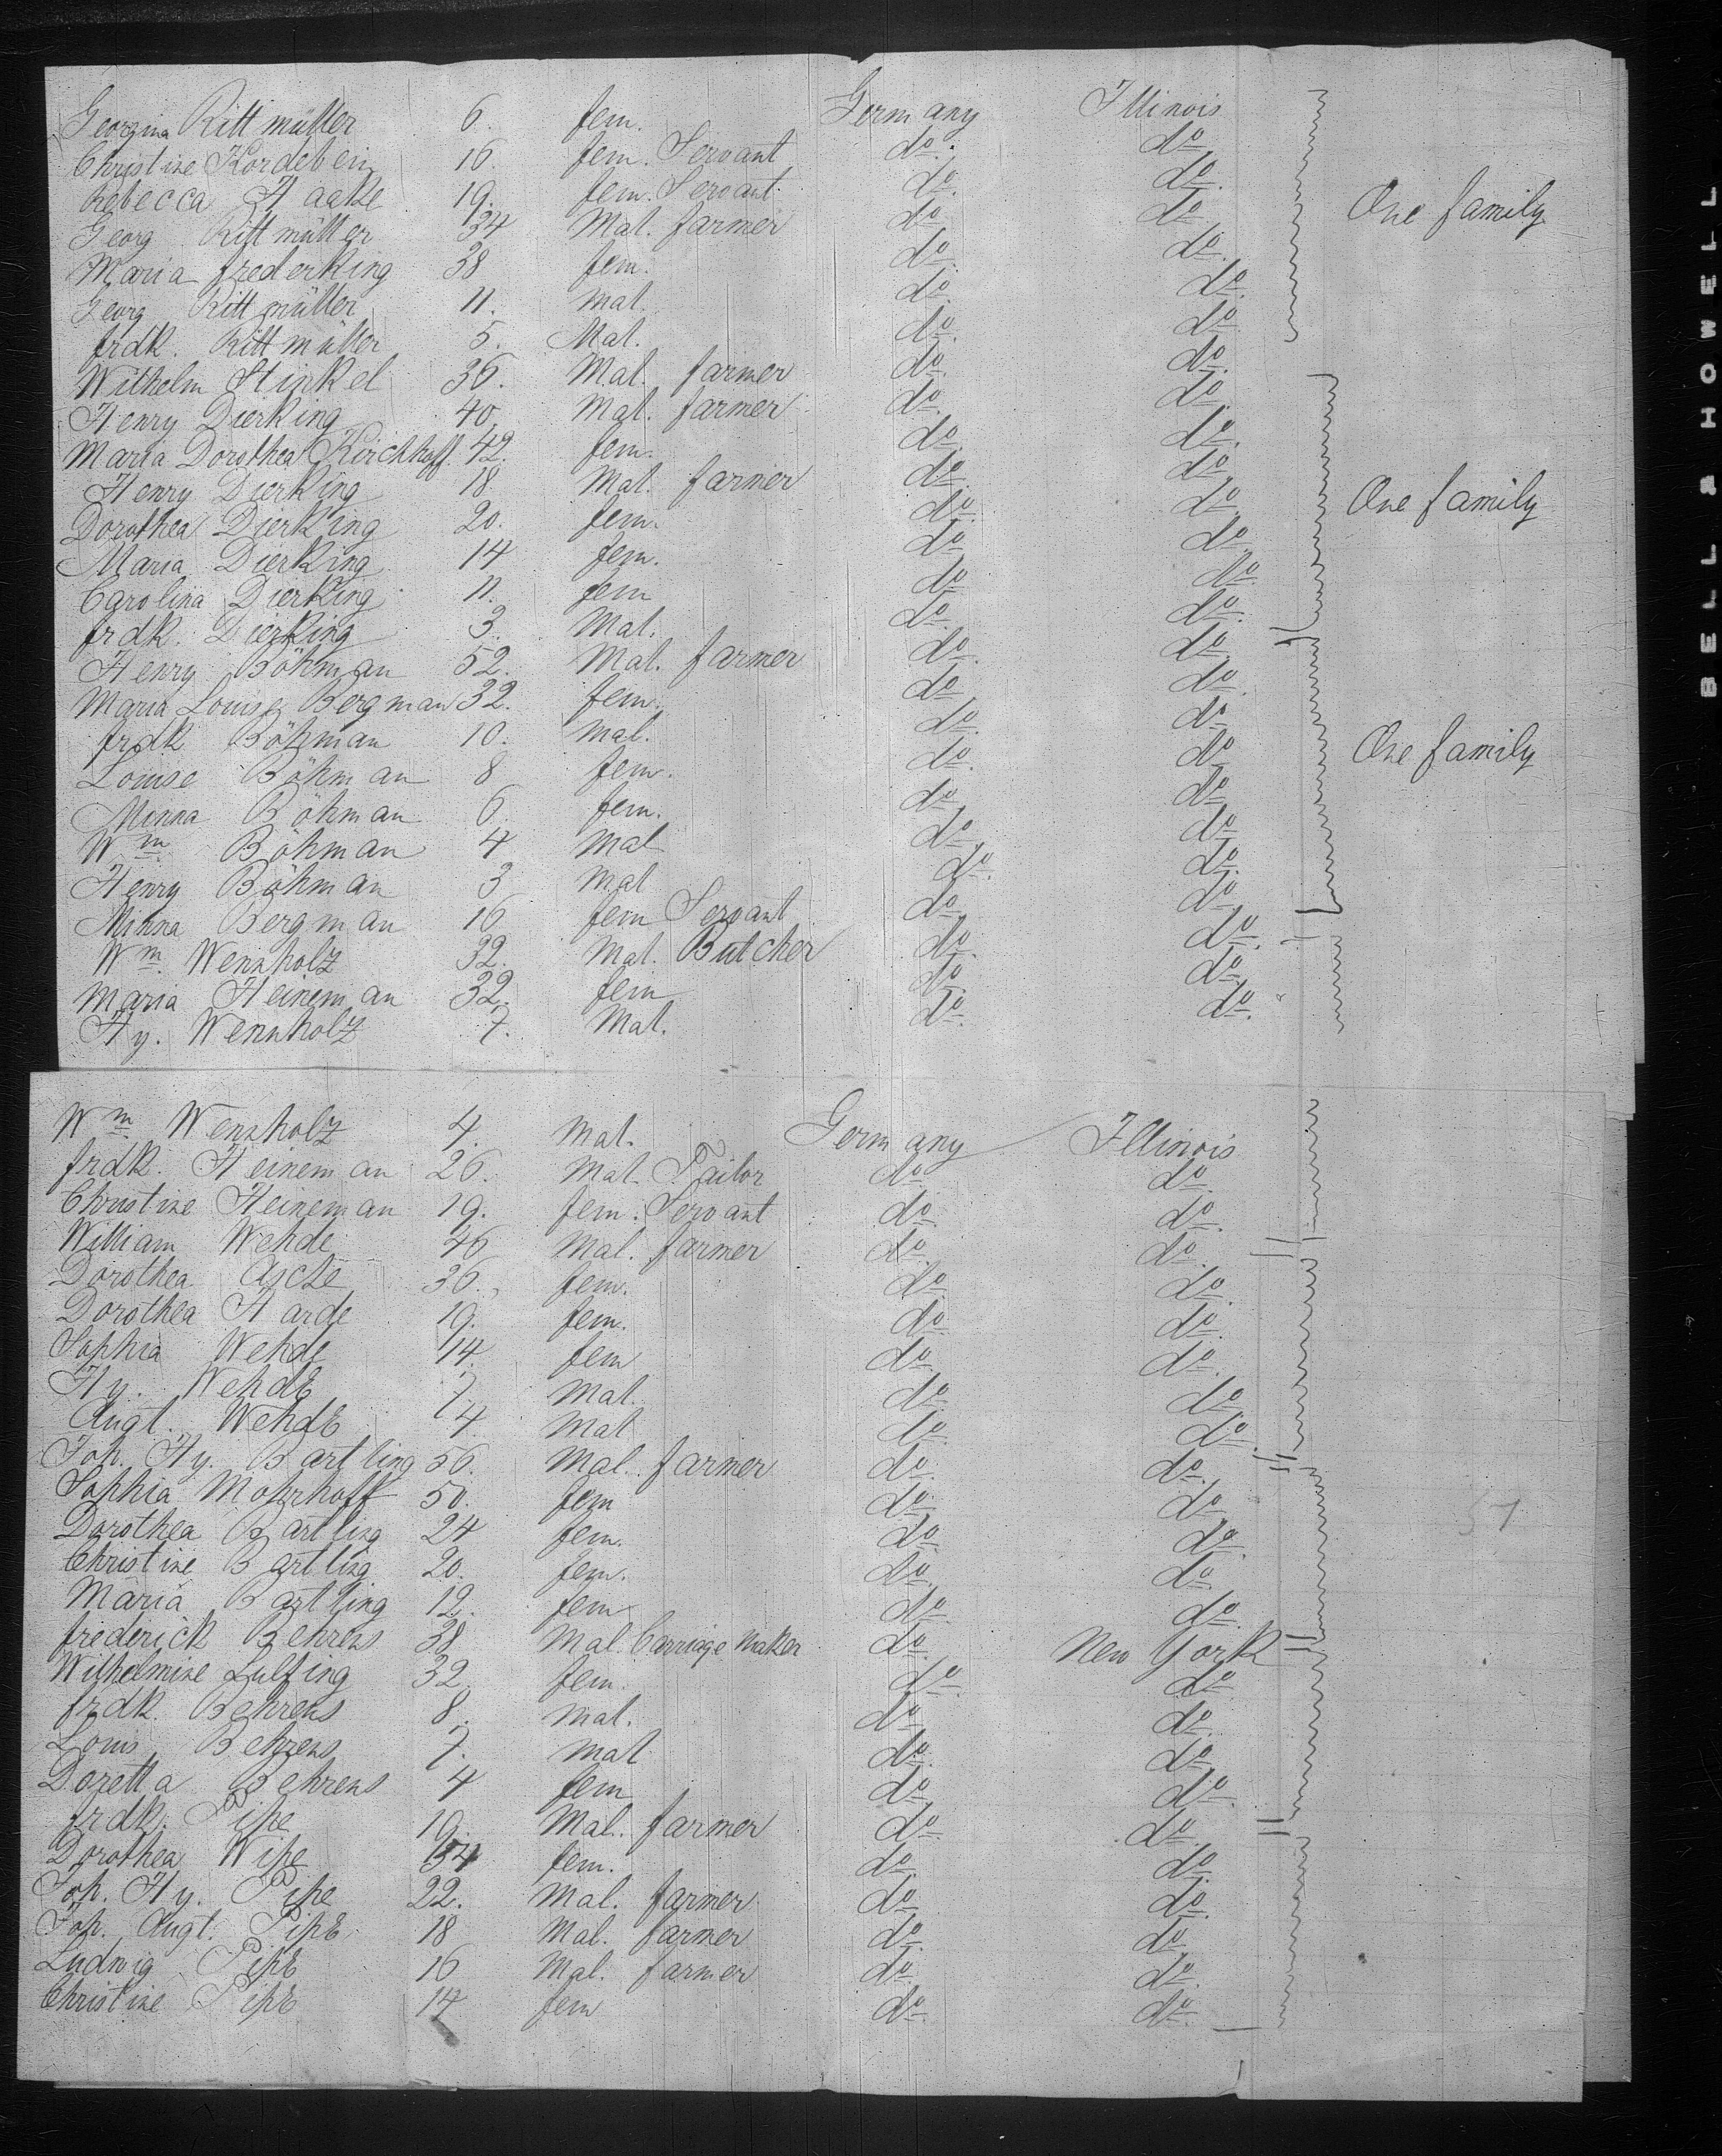 Georgina Rittmüller 6. fem. Germany Illinois
Christine Kordebein 16. fem. Servant do. do.
Rebecca Haake 19. fem. Servant. do. do. One family
Georg Rittmüller 34 Mal. farmer do. do.
Maria frederking 38 fem. do. do.
Georg Rittmüller 11. mal. do. do.
frdk. Rittmüller 5. Mal. do. do.
Wilhelm Hinkel 36. Mal. farmer do. do.
Henry Dierking 40. Mal. farmer do. do.
Maria Dorothea Kirchhoff. 42. fem. do. do.
Henry Dierking 18. Mal. farmer do. do. One family
Dorothea Dierking 20. fem. do. do.
Maria Dierking 14 fem. do. do.
Carolina Dierking 11. fem do. do.
frdk. Dierking 3. Mal. do. do.
Henry Böhman 52. Mal. farmer do. do.
Maria Louise Bergman 32. fem. do. do.
frdk Böhman 10. Mal. do. do.
Louise Böhman 8 fem. do. do. One family
Minna Böhman 6. fem. do. do.
Wm. Böhman 4 Mal do. do.
Henry Böhman 3 Mal do. do.
Minna Bergman 16 fem Servant do. do.
Wm. Wennholz 32. Mal. Butcher do. do.
Maria Heineman 32. fem do. do.
Hy. Wennholz 7. Mal. do. do.
Wm. Wennholz 4. Mal. Germany Illinois
frdk. Heineman 26. Mal. Tailor do. do.
Christine Heineman 19. fem. Servant do. do.
William Wehde 46 Mal. farmer do. do.
Dorothea Asche 36. fem. do. do.
Dorothea Harde 19. fem. do. do.
Sophia Wehde 14. fem do. do.
Hy. Wehde 7 Mal. do. do.
Augt. Wehde 4. Mal do. do.
Joh. Hy. Bartling 56. Mal. farmer do. do.
Sophia Mohrhoff 50. fem do. do.
Dorothea Bartling 24 fem. do. do.
Christine Bartling 20. fem. do. do.
Maria Bartling 12. fem do. do.
frederick Behrens 38 Mal. Carriage Maker do. New York
Wilhelmine Lulfing 32. fem. do. do.
frdk. Behrens 8. mal. do. do.
Louis Behrens 7. Mal do. do.
Doretta Behrens 4 fem do. do.
frdk. Pipe 19. Mal. farmer do. do.
Dorothea Wipe fem. do. do.
Joh. Hy. Pipe 22. Mal. farmer do. do.
Joh. Augt. Pipe 18 Mal. farmer do. do.
Ludwig Pipe 16 Mal. farmer do. do.
Christine Pipe 14 fem do. do.
BELL & HOWELL